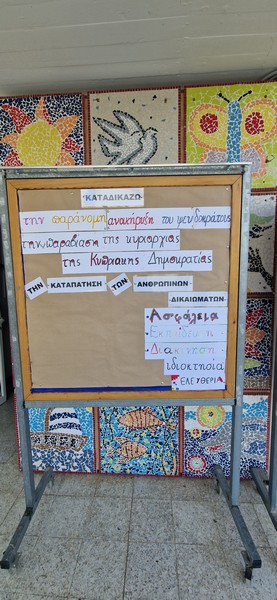 ΚΑΤΑΔΙΚΑΖΩ
την παράνομη ανακήρυξη του ψευδοκράτους
την παραβίαση της κυριαρχίας
της Κυπριακής Δημοκρατίας
ΤΗΝ ΚΑΤΑΠΑΤΗΣΗ ΤΩΝ ΑΝΘΡΩΠΙΝΩΝ
ΔΙΚΑΙΩΜΑΤΩΝ
Ασφάλεια
Εκπαίδευση
Διακίνηση
ιδιοκτησία
ΕΛΕΥΘΕΡΙΑ